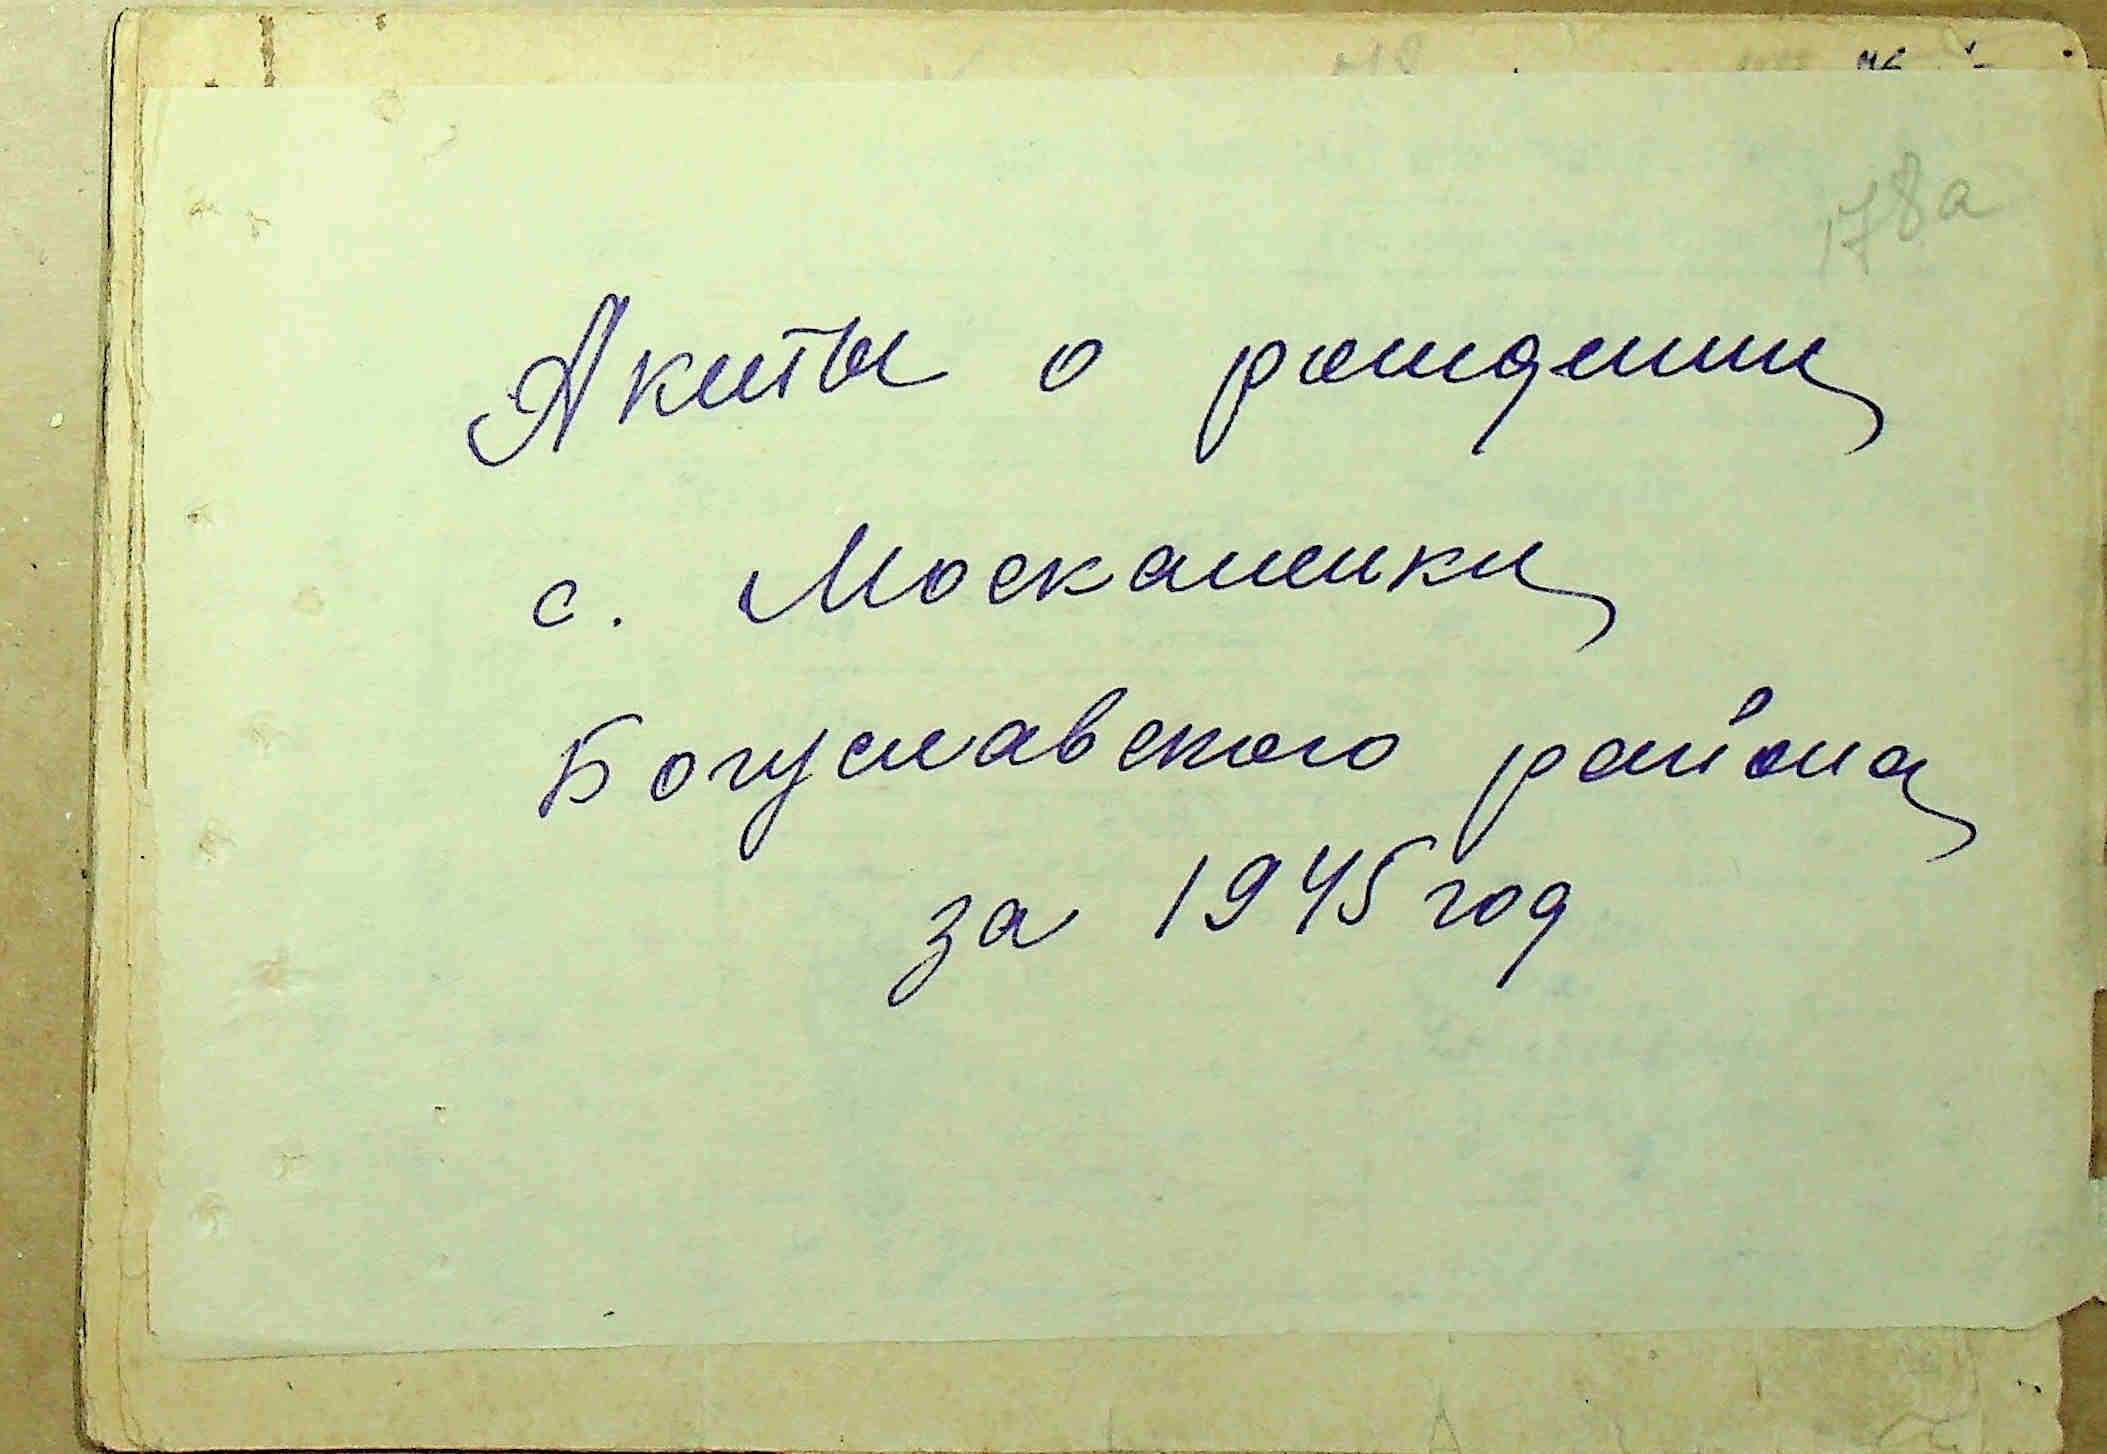 178а
Акты о рождении
с. Москаленки
Богуславского района
за 1945 год